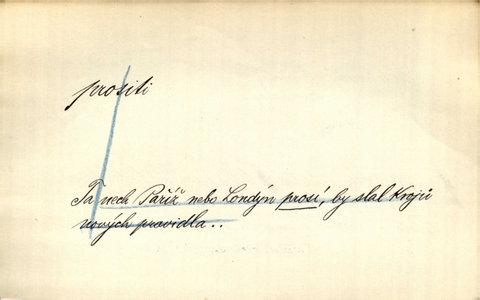 prositi
Ta nech Paříž nebo Londýn prosí, by slal Krojů
nových pravidla . .